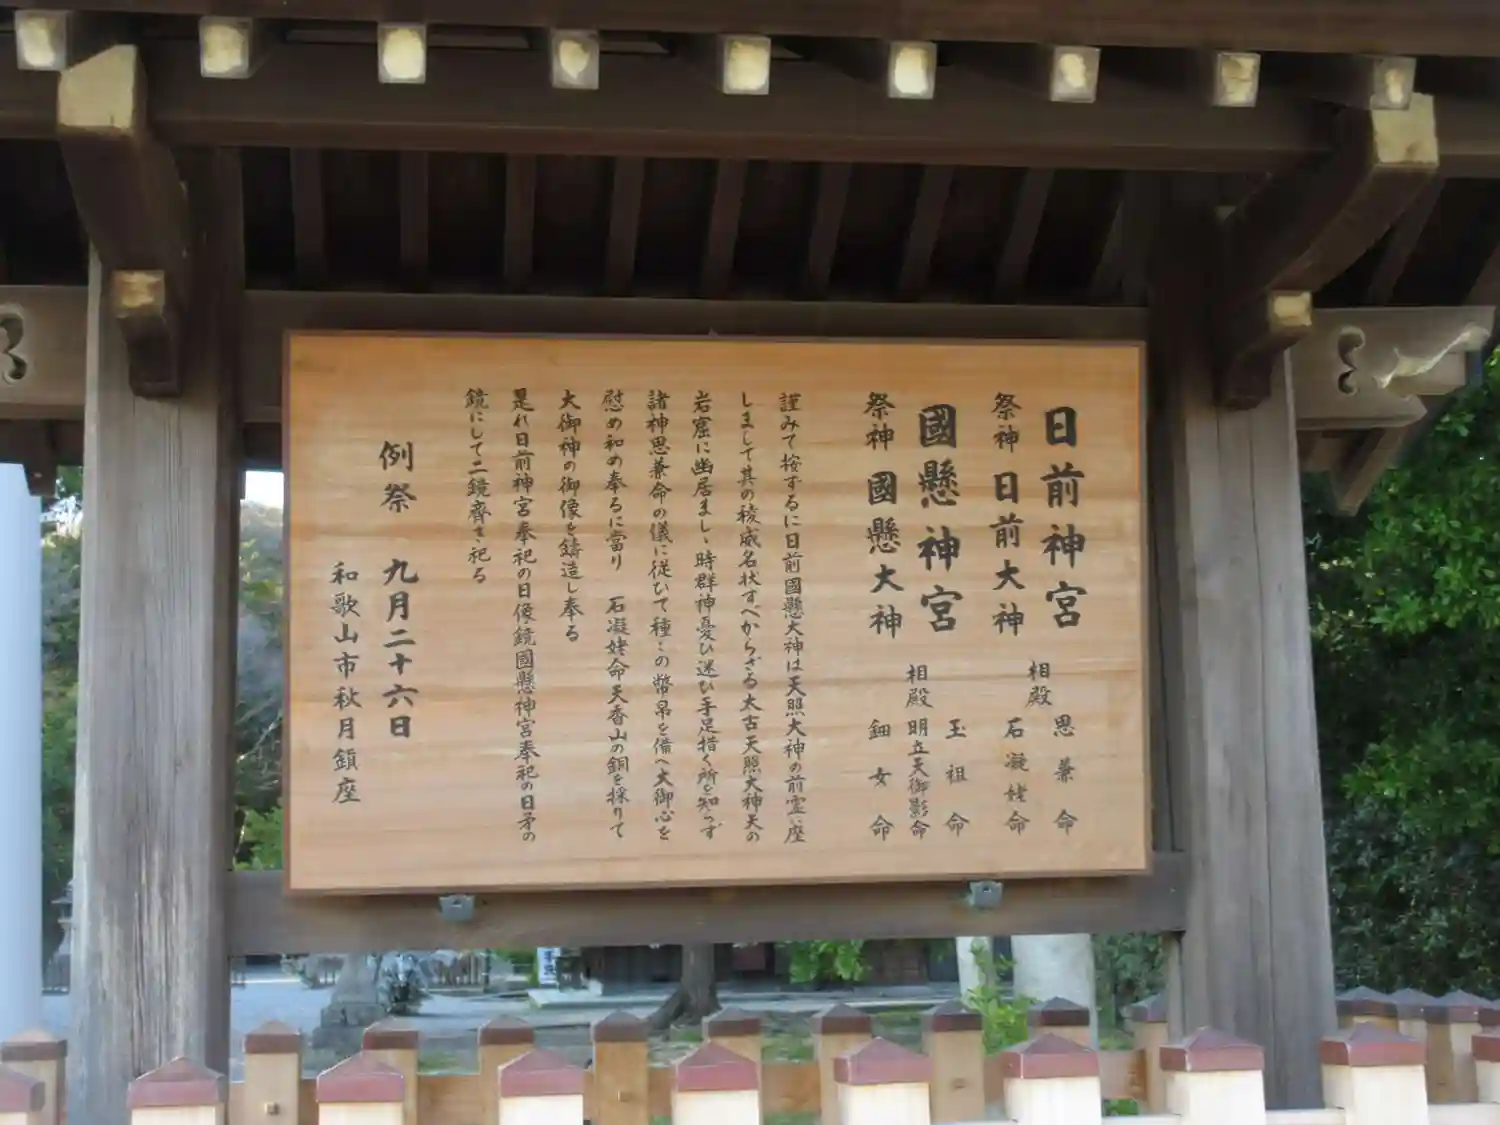 日前神宮
祭神 日前大神
相殿
思兼命
石凝姥命
國懸神宮
祭神 國懸大神
相殿
玉祖命
明立天御影命
鈿女命
謹みて按ずるに日前國懸大神は天照大神の前霊に座
しまして其の稜威名状すべからざる太古天照大神天の
岩窟に幽居ましヽ時群神憂ひ迷ひ手足措く所を知らず
諸神思兼命の儀に従ひて種〻の幣帛を備へ大御心を
慰め和め奉るに當り 石凝姥命天香山の銅を採りて
大御神の御像を鋳造し奉る
是れ日前神宮奉祀の日像鏡國懸神宮奉祀の日矛の
鏡にして二鏡齊き祀る
例祭 九月二十六日
和歌山市秋月鎮座